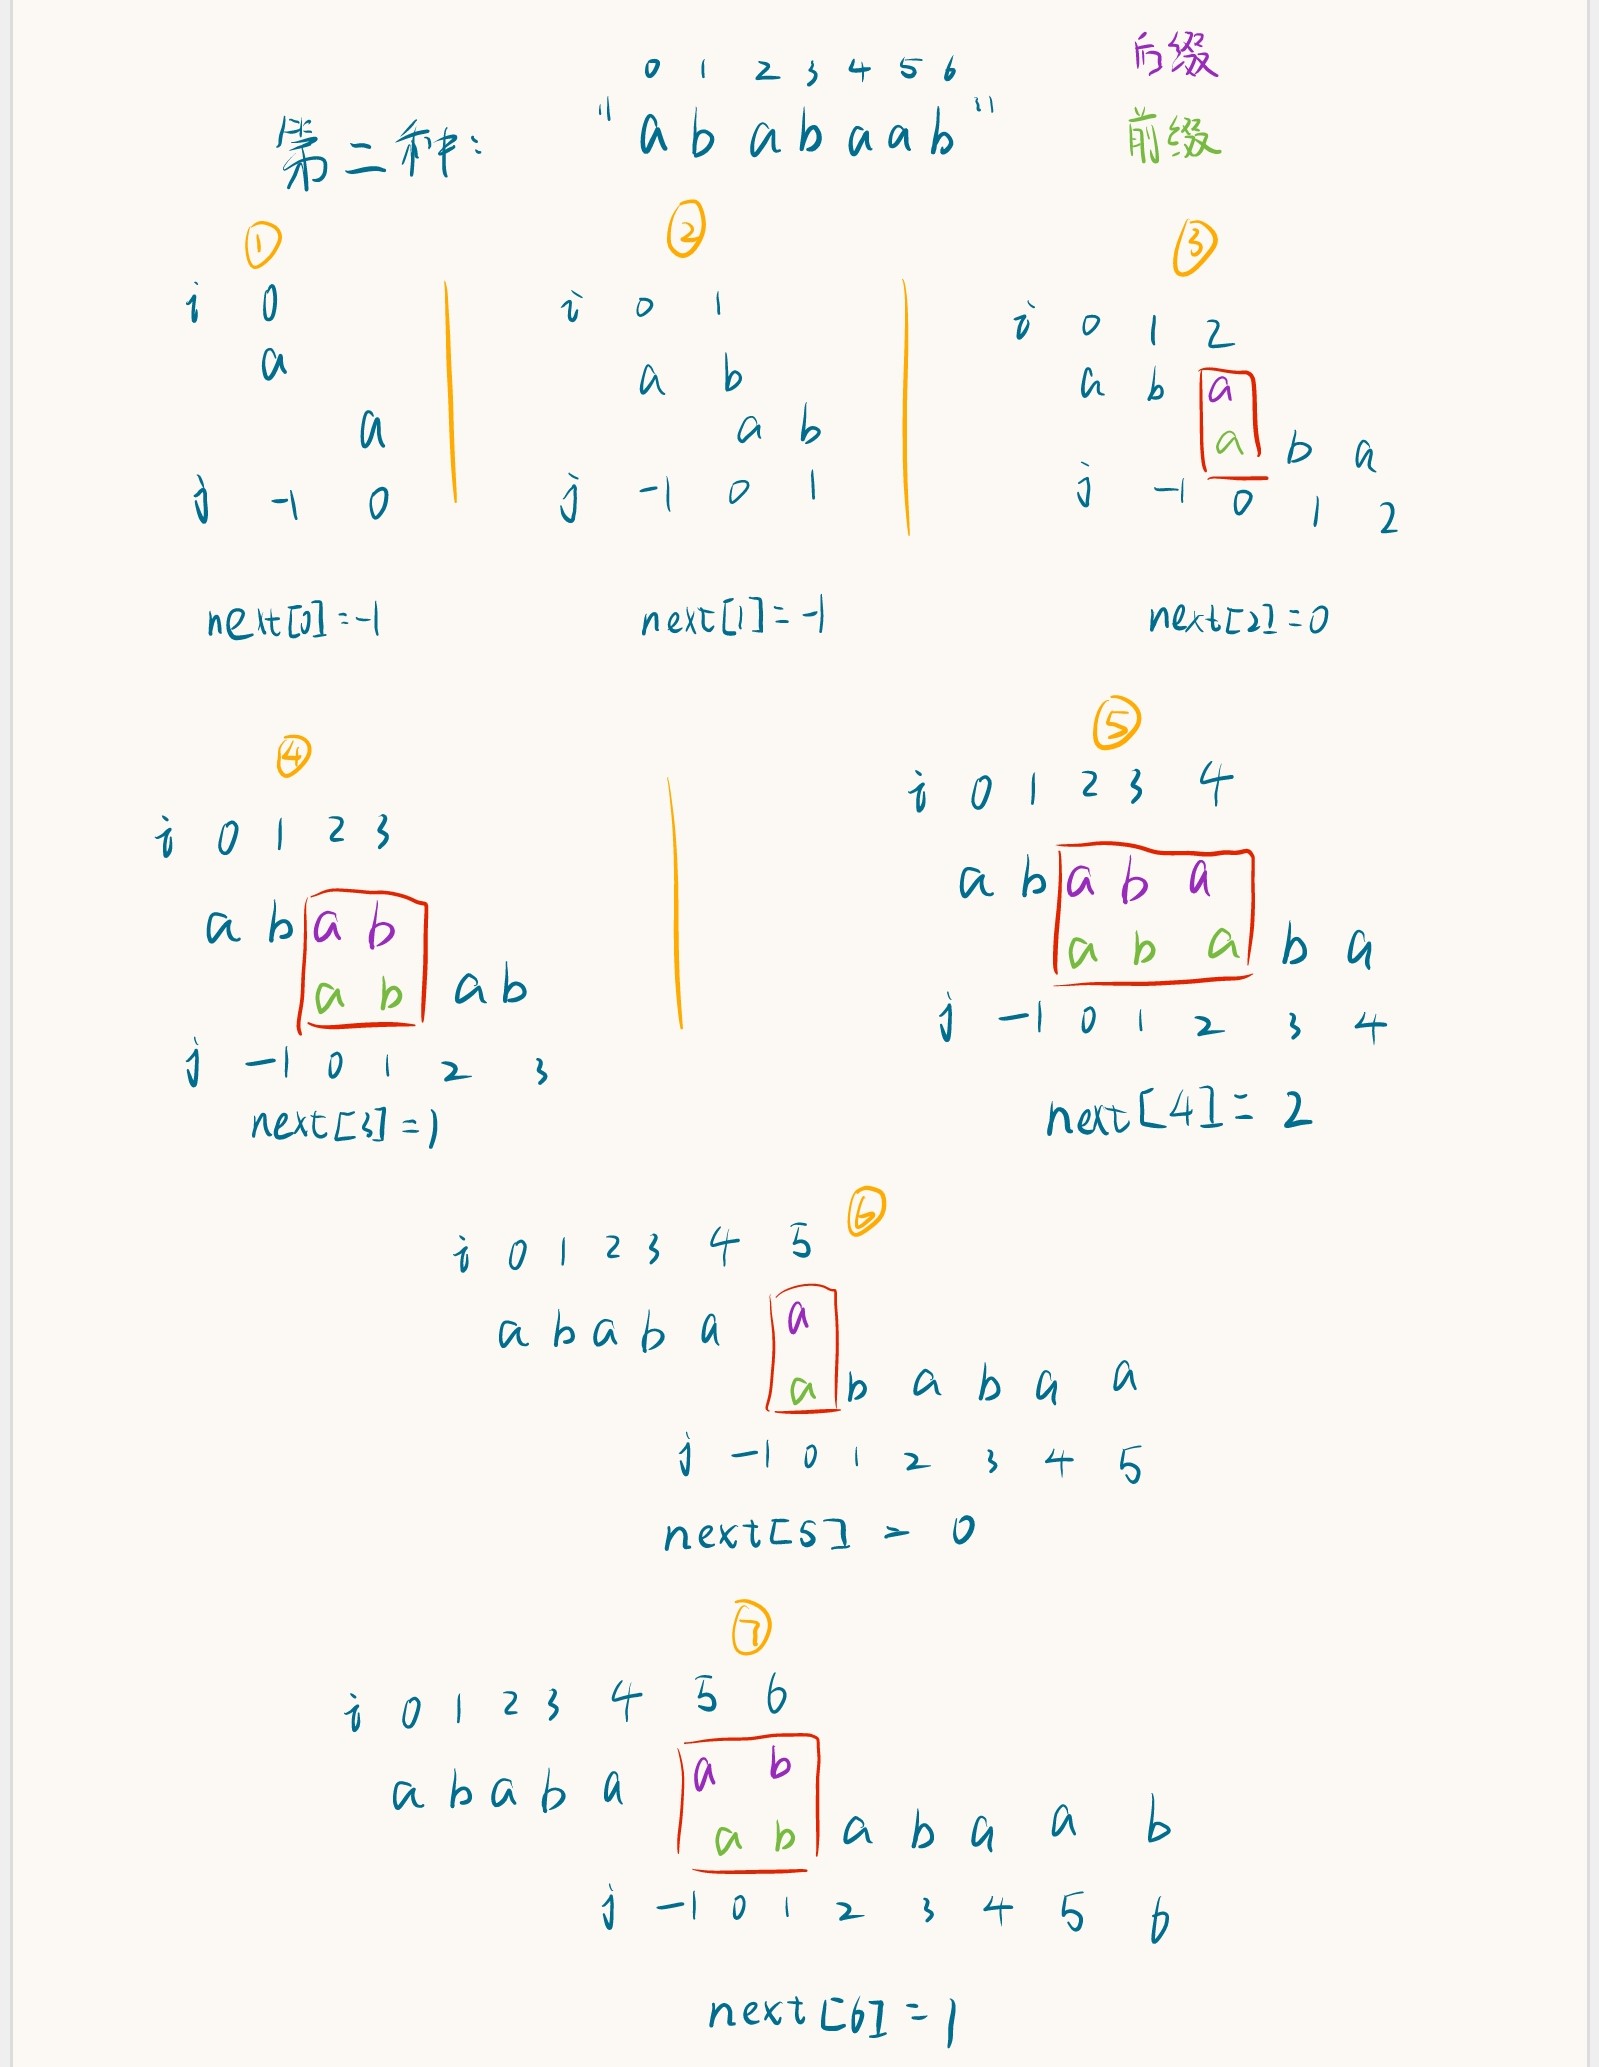 0 1 2 3 4 5 6
后缀
第二种: "a b a b a a b"
前缀
①
i 0
a
a
j -1 0
next[0]=-1
②
i 0 1
a b
a b
j -1 0 1
next[1]=-1
③
i 0 1 2
a b a
a b a
j -1 0 1 2
next[2]=0
④
i 0 1 2 3
a b a b
a b a b
j -1 0 1 2 3
next[3]=1
⑤
i 0 1 2 3 4
a b a b a
a b a b a
j -1 0 1 2 3 4
next[4]=2
⑥
i 0 1 2 3 4 5
a b a b a a
a b a b a a
j -1 0 1 2 3 4 5
next[5]=0
⑦
i 0 1 2 3 4 5 6
a b a b a a b
a b a b a a b
j -1 0 1 2 3 4 5 6
next[6]=1